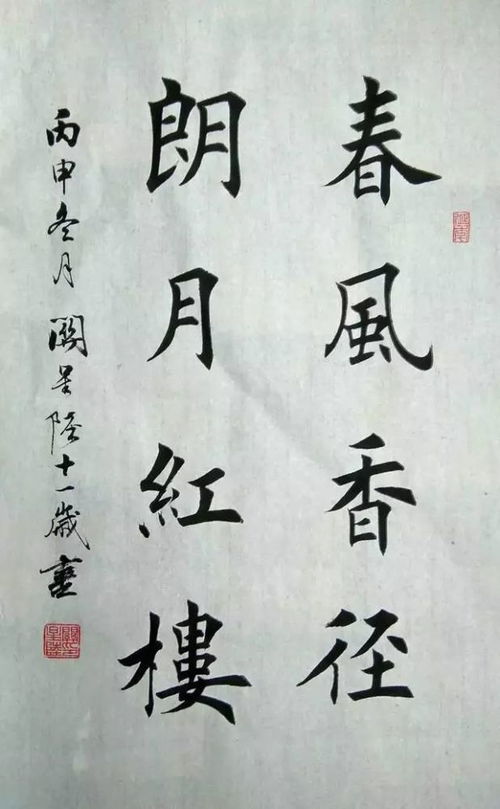 春風香径
朗月紅樓
丙申冬月關星隆十一歲書